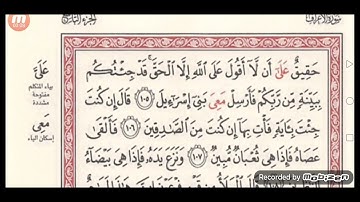 سورة الأعراف
الجزء التاسع
حَقِيقٌ عَلَىَّ أَن لَّا أَقُولَ عَلَى اللَّهِ إِلَّا الْحَقَّ قَدْ جِئْتُكُم
بِبَيِّنَةٍ مِّن رَّبِّكُمْ فَأَرْسِلْ مَعِى بَنِى إِسْرَٰٓءِيلَ ١٠٥ قَالَ إِن كُنتَ
جِئْتَ بِـَٔايَةٍ فَأْتِ بِهَا إِن كُنتَ مِنَ الصَّٰدِقِينَ ١٠٦ فَأَلْقَىٰ
عَصَاهُ فَإِذَا هِىَ ثُعْبَانٌ مُّبِينٌ ١٠٧ وَنَزَعَ يَدَهُۥ فَإِذَا هِىَ بَيْضَآءُ
عَلَىَّ
بياء المتكلم
مفتوحة
مشددة
مَعِى
إسكان الياء
Recorded by mobizen